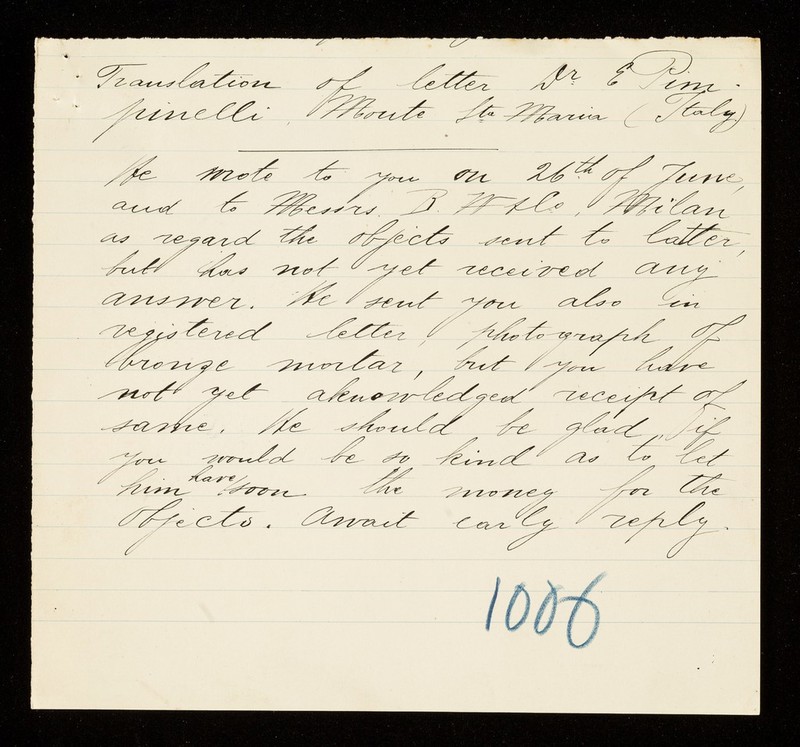 Translation of letter Dr E Pim-
pinelli. Monte Sta Maria (Italy)
He wrote to you on 26th of June,
and to Messrs. B. W & Co, Milan
as regard the objects sent to latter,
but has not yet received any
answer. He sent you also in
registered letter, photograph of
bronze mortar, but you have
not yet aknowledged receipt of
same. He should be glad, if
you would be so kind as to let
him have soon the money for the
objects. Await early reply.
1006